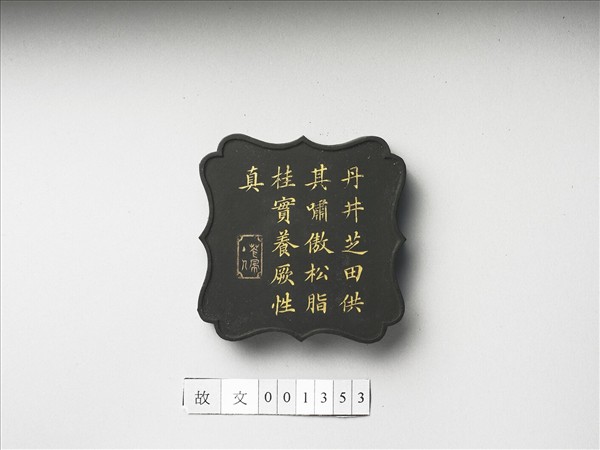 丹井芝田供
其嘯傲松脂
桂實養厥性
真
故文001353